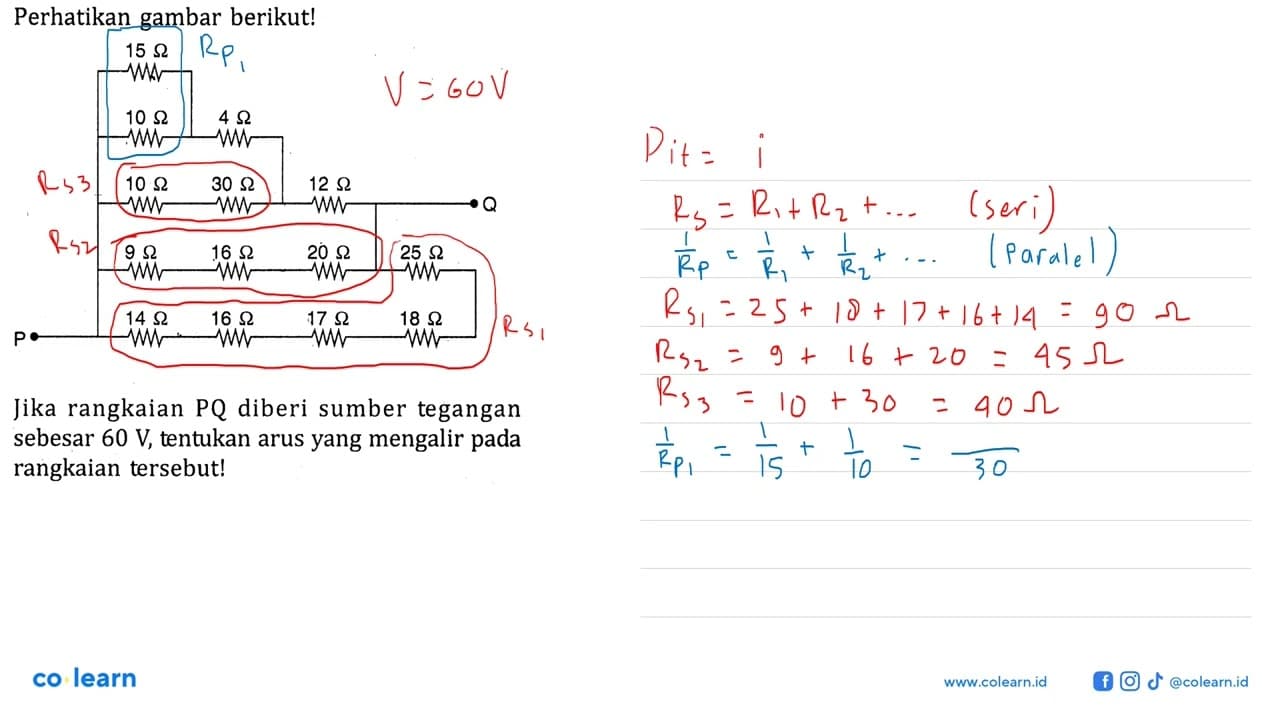 Perhatikan gambar berikut!
15 Ω
Rp1
V = 60V
10 Ω 4 Ω
Rs3 10 Ω 30 Ω 12 Ω
Q
Rs2 9 Ω 16 Ω 20 Ω 25 Ω
14 Ω 16 Ω 17 Ω 18 Ω
P
Rs1
Jika rangkaian PQ diberi sumber tegangan
sebesar 60 V, tentukan arus yang mengalir pada
rangkaian tersebut!
Dit = i
Rs = R1 + R2 + ... (seri)
1/Rp = 1/R1 + 1/R2 + ... (Paralel)
Rs1 = 25 + 18 + 17 + 16 + 14 = 90 Ω
Rs2 = 9 + 16 + 20 = 45 Ω
Rs3 = 10 + 30 = 40 Ω
1/Rp1 = 1/15 + 1/10 = /30
co learn
www.colearn.id
@colearn.id